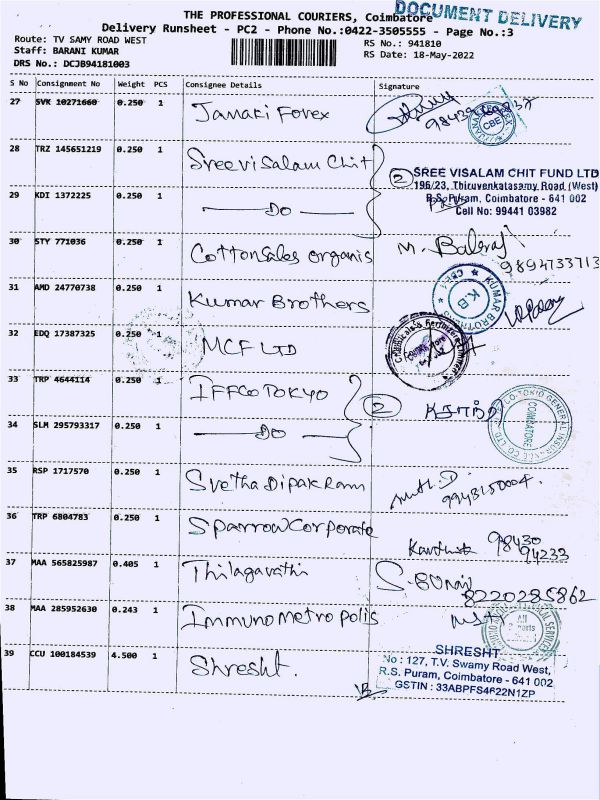 THE PROFESSIONAL COURIERS, Coimbatore
DOCUMENT DELIVERY
Delivery Runsheet - PC2 - Phone No.:0422-3505555 - Page No.:3
Route: TV SAMY ROAD WEST
RS No.: 941810
Staff: BARANI KUMAR
RS Date: 18-May-2022
DRS No.: DCJB94181003
S No Consignment No Weight PCS Consignee Details Signature
27 SVK 10271660 0.250 1 Janaki Forex
CBE
28 TRZ 145651219 0.250 1 Sreevisalam Chit
2 SREE VISALAM CHIT FUND LTD
196/23, Thiruvenkatasamy Road (West)
R.S. Puram, Coimbatore - 641 002
Cell No: 99441 03982
29 KDI 1372225 0.250 1 DO
30 STY 771036 0.250 1 Cottonsales organis M. Balraj
9894733713
31 AMD 24770738 0.250 1 Kumar Brothers
KUMAR BROTHERS K.B CBE-1
32 EDQ 17387325 0.250 1 MCF LTD
33 TRP 4644114 0.250 1 IFFCO TOKYO 2
COIMBATORE
34 SLM 295793317 0.250 1 DO
35 RSP 1717570 0.250 1 Svetha Dipak Ram
9943150004.
36 TRP 6804783 0.250 1 Sparrow Corporate
98430
94233
37 MAA 565825987 0.405 1 Thilagavathi
8220285862
38 MAA 285952630 0.243 1 Immunometropolis
39 CCU 100184539 4.500 1 Shresht.
SHRESHT
No : 127, T.V. Swamy Road West,
R.S. Puram, Coimbatore - 641 002
GSTIN : 33ABPFS4622N1ZP